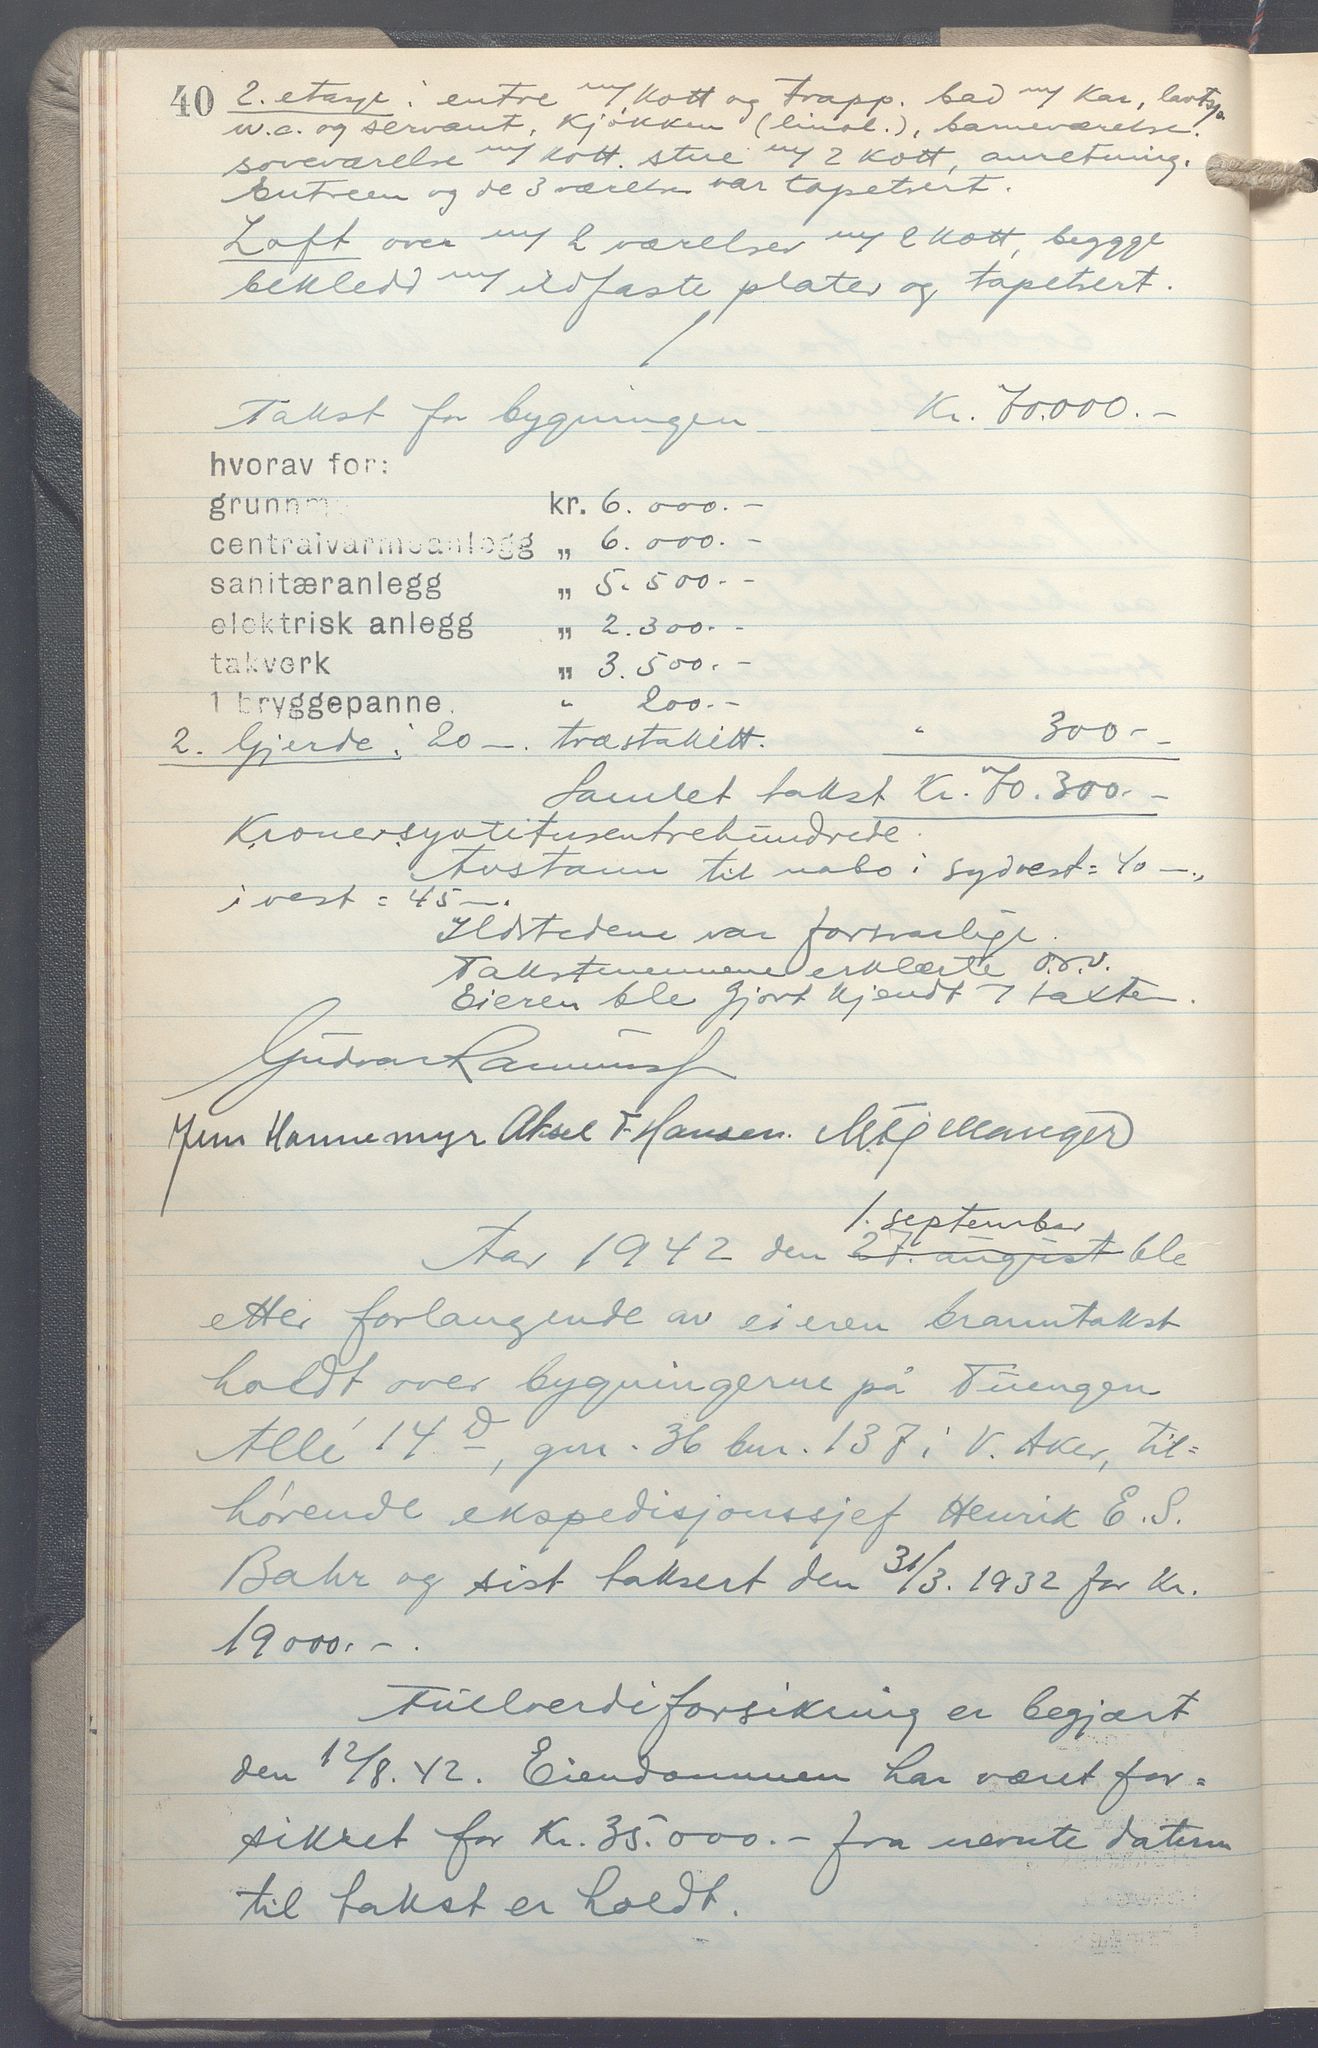 40
2. etasje: entre m/ kott og trapp. bad m/ kar, lavtsp.
w.c. og servant, kjøkken (linol.), barneværelse.
soveværelse m/ kott. stue m/ 2 kott, anretning.
Entreen og de 3 værelser var tapetsert.
Loft over m/ 2 værelser m/ 2 kott, beggge
bekledd m/ ildfaste plater og tapetsert.
Takst for bygningen Kr. 70.000.-
hvorav for:
grunnm kr. 6.000.-
centralvarmeanlegg „ 6.000.-
sanitæranlegg „ 5.500.-
elektrisk anlegg „ 2.300.-
takverk „ 3.500.-
1 bryggepanne „ 200.-
2. Gjerde: 20 —. træstakitt. „ 300.-
Samlet takst Kr. 70.300.-
Kroner syttitusentrehundrede.
Avstann til nabo i sydvest = 40 —.,
i vest = 45 —.
Ildstedene var forsvarlige.
Takstmennene erklærte o.s.v.
Eieren ble gjort kjendt m/ taxten.
Jens Hannemyr Aksel F Hansen.
1. september
Aar 1942 den 27. august ble
etter forlangende av eieren branntakst
holdt over bygningerne på Tuengen
Allé 14 D, gnr. 36 bnr. 137 i V. Aker, til=
hørende ekspedisjonssjef Henrik E. S.
Bahr og sist taksert den 31/3. 1932 for kr.
19000.-.
Fullverdiforsikring er begjært
den 12/8. 42. Eiendommen har været for=
sikret for Kr. 35.000.- fra nevnte datum
til takst er holdt.